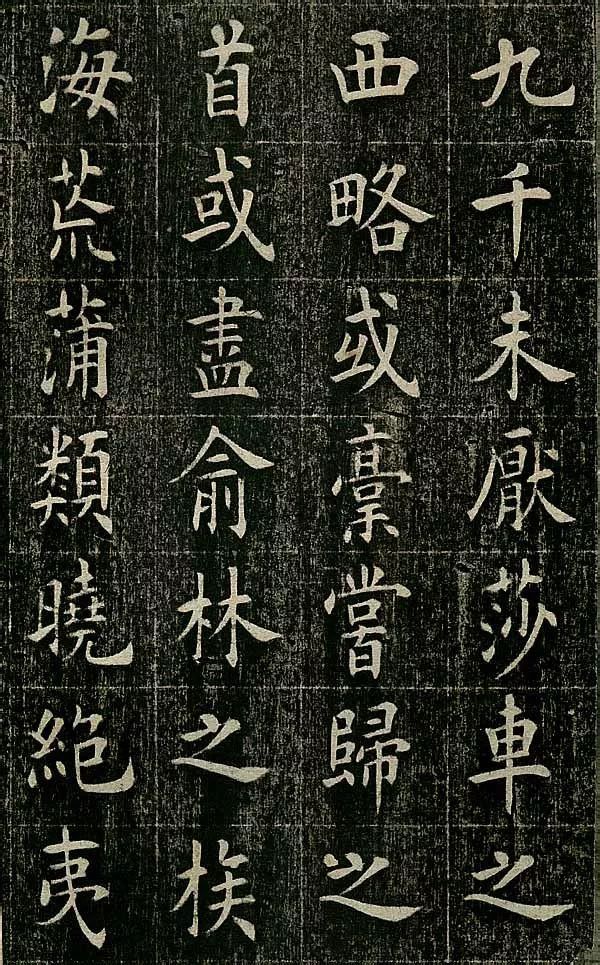 九千未厭莎車之
西略或稾嘗歸之
首或盡俞林之族
海荒蒲類曉絶夷